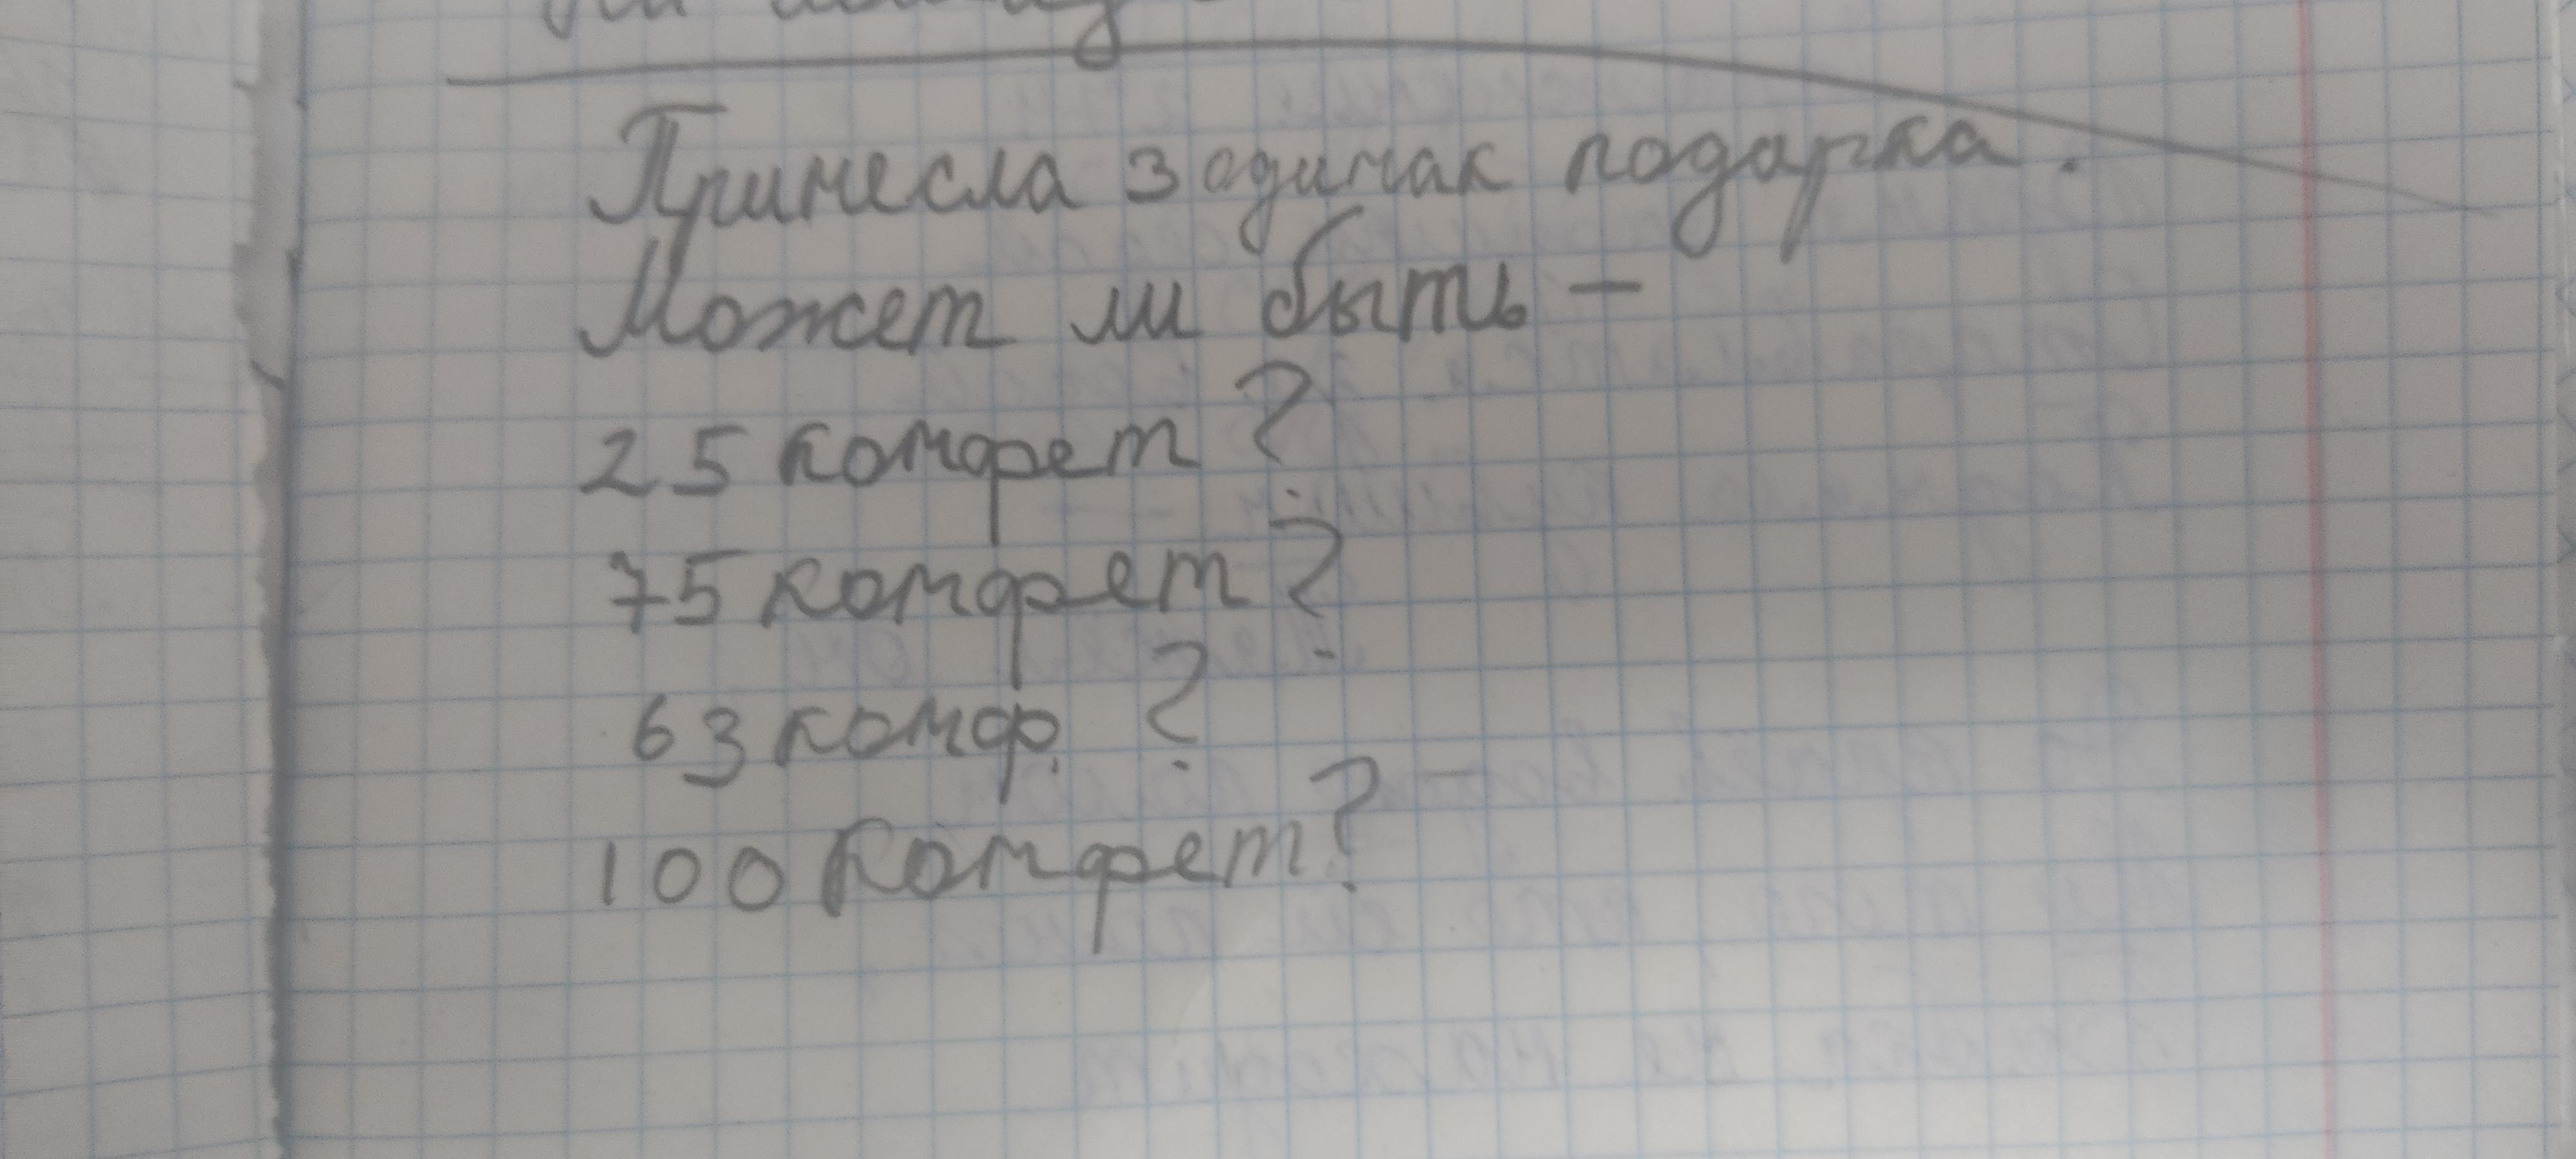 Принесла 3 одинак подарка.
Может ли быть –
25 конфет?
75 конфет?
63 конф. ?
100 конфет?